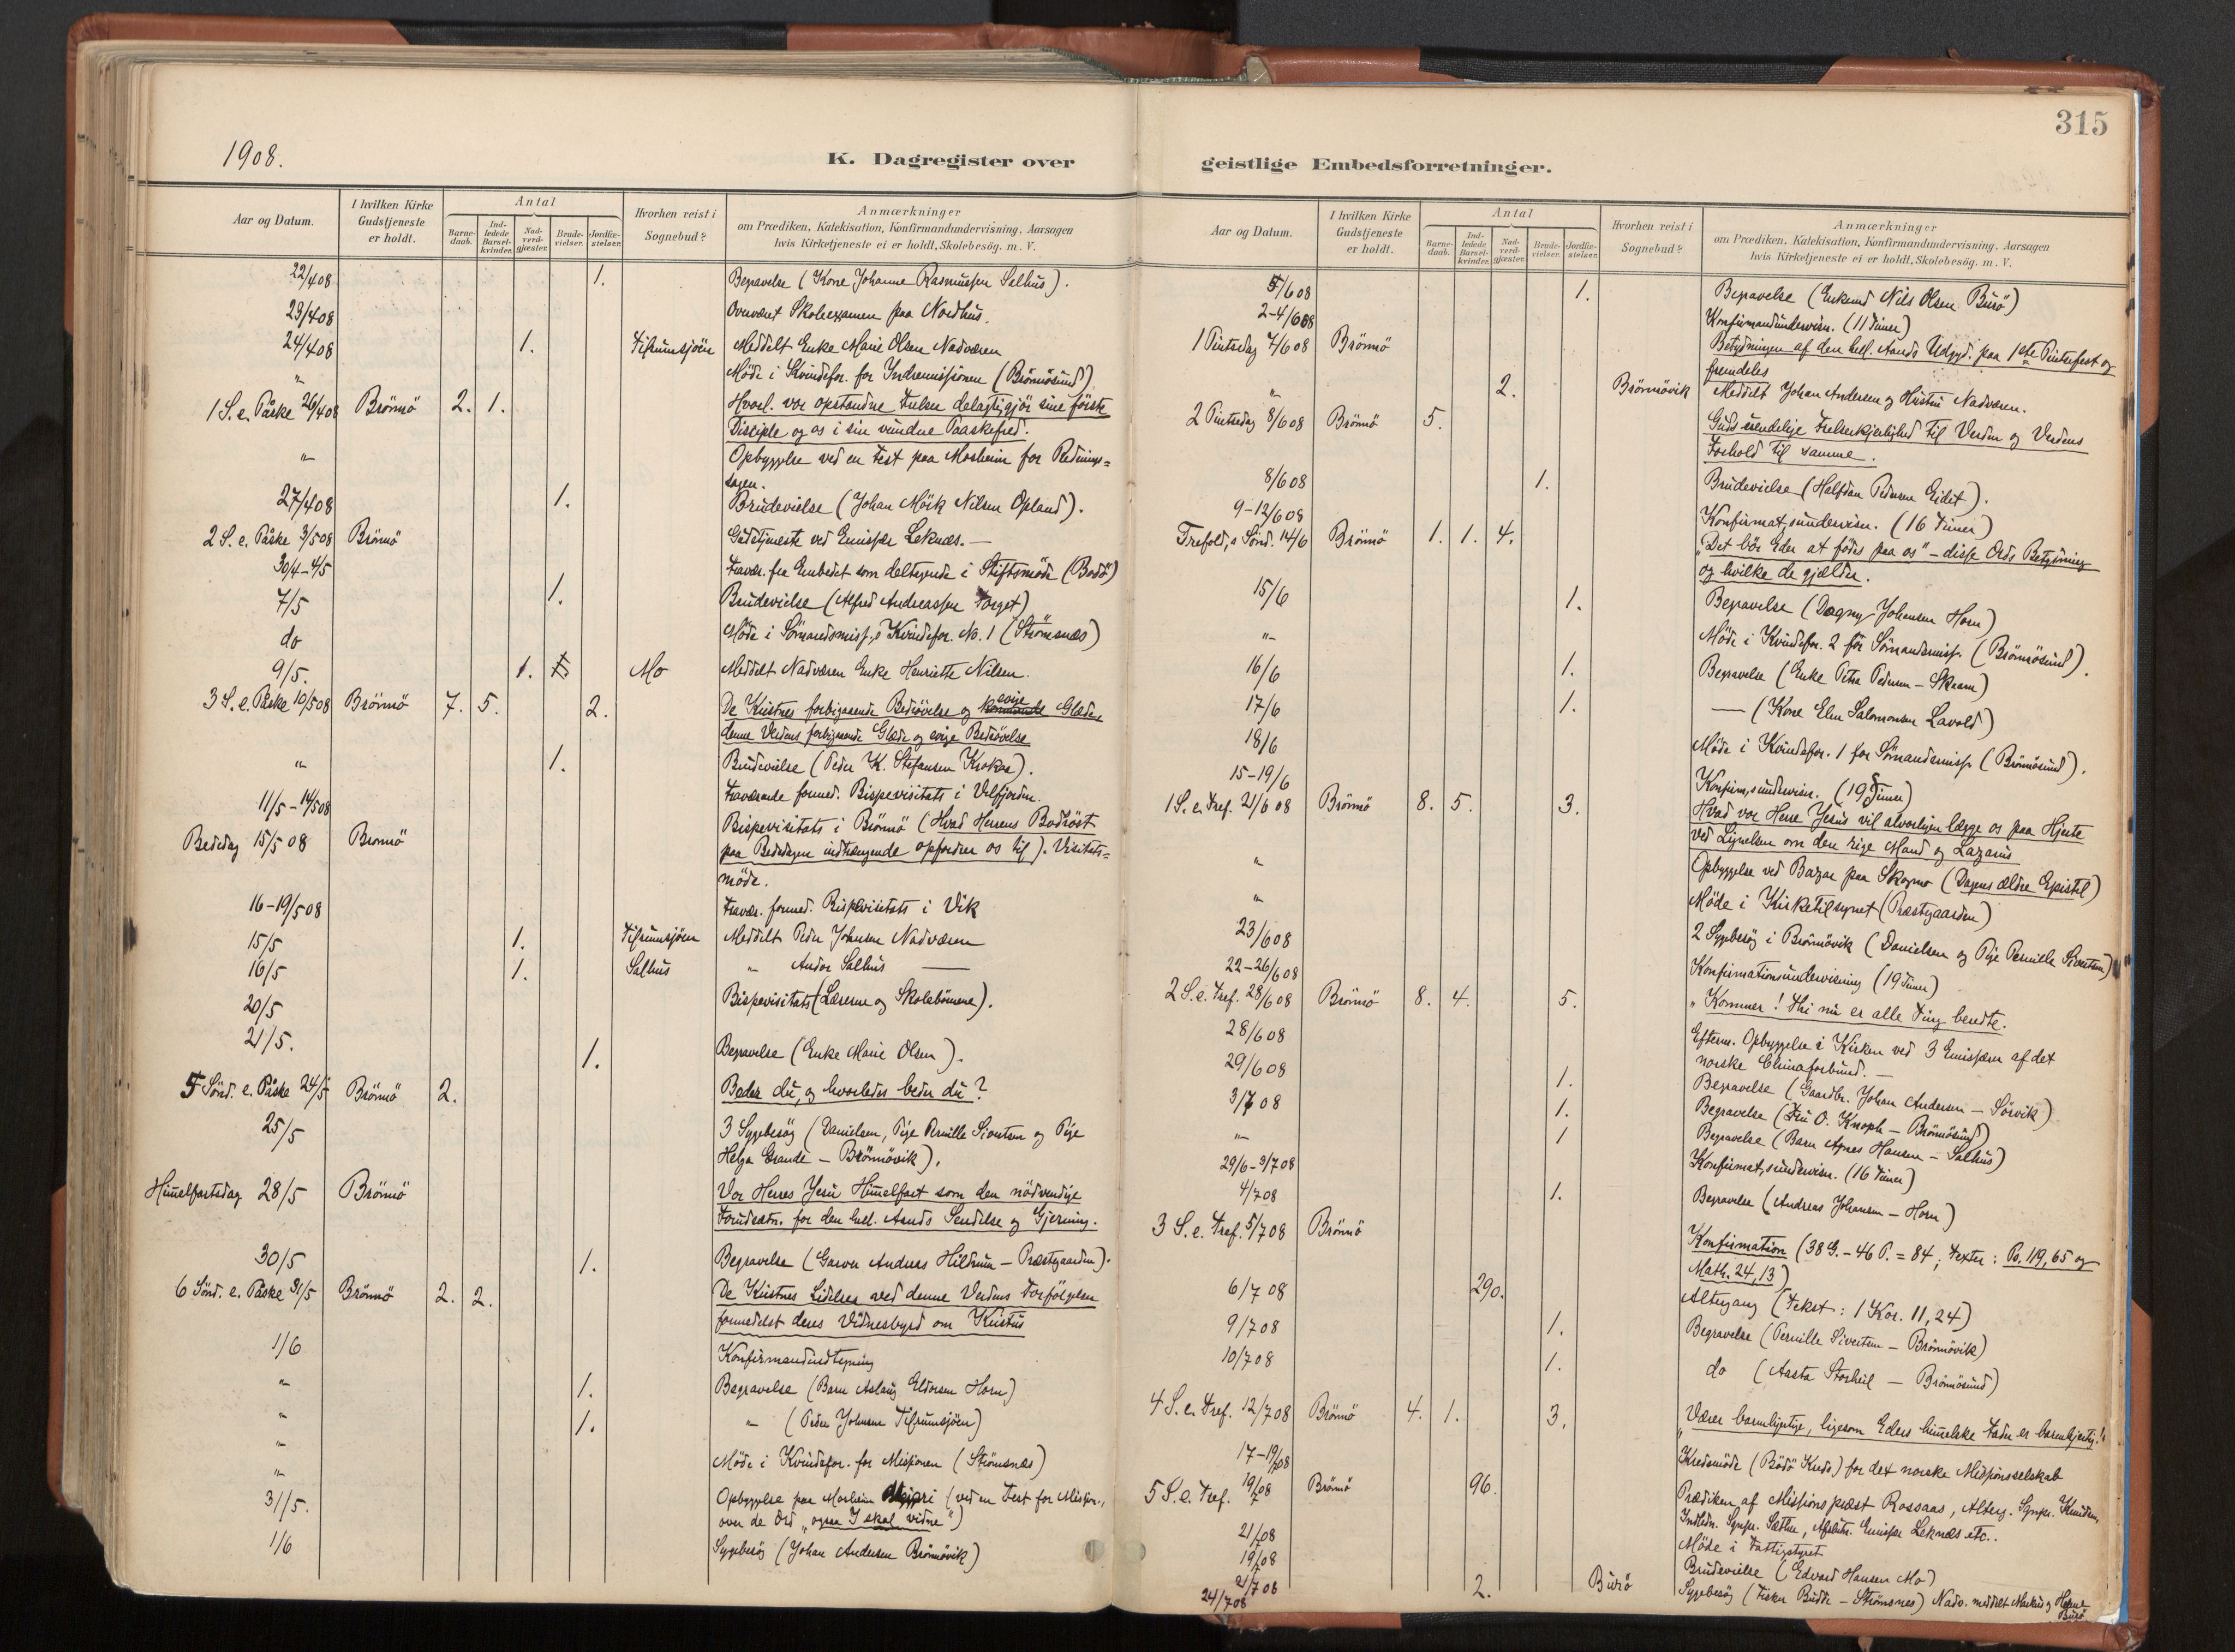 315
1908.
K. Dagregister over geistlige Embedsforretninger.
Aar og Datum.
I hvilken Kirke Gudstjeneste er holdt.
Antal
Barnedaab.
Indledede Barselkvinder.
Nadverdgjæster.
Brudevielser.
Jordfæstelser.
Hvorhen reist i Sognebud?
Anmærkninger
om Prædiken, Katekisation, Konfirmandundervisning. Aarsagen
hvis Kirketjeneste ei er holdt, Skolebesög. m. V.
22/4 08 1. Begravelse (Kone Johanne Rasmussen Salhus).
23/4 08 Overværet Skoleexamen paa Nordhus.
24/4 08 1. Tilrumsjöen Meddelt Enke Marie Olsen Nadveren
" Möde i Kvindefor. for Indremissionen (Brönnösund)
1 S. e. Påske 26/4 08 Brönnö 2. 1. Hvorl. vor opstandne Frelser delagtiggjör sine förste
Disciple og os i sin vundne Paaskefred.
" Opbyggelse ved en Fest paa Mosheim for Rednings=
sagen.
27/4 08 1. Brudevielse (Johan Mörk Nilsen Opland).
2 S. e. Påske 3/5 08 Brönnö Gudstjeneste ved Emissær Leknæs. —
30/4-4/5 Fravær. fra Embedet som deltagende i Stiftsmöde (Bodö)
7/5 1. Brudevielse (Alfred Andreassen Torget)
do Möde i Sömandsmiss,s Kvindefor. No. 1 (Strömsnæs)
9/5. 1. Mo Meddelt Nadveren Enke Henriette Nilsen.
3 S. e. Påske 10/5 08 Brönnö 7. 5. 2. De Kristnes forbigaaende Bedrövelse og evige Glæde,
denne Verdens forbigaaende Glæde og evige Bedrövelse
" 1. Brudevielse (Peder K. Stefansen Krokaa).
11/5-14/5 08 Fraværende formed. Bispevisitats i Velfjorden.
Bededag 15/5 08 Brønnö Bispevisitats i Brönnö (Hvad Herrens Bodröst
paa Bededagen indtrængende opfordrer os til). Visitats=
möde.
16-19/5 08 Fravær. formed. Bispevisitats i Vik
15/5 1. Tilrumsjöen Meddelt Peder Johnsen Nadveren
16/5 1. Salhus " Andor Salhus —
20/5 Bispevisitats (Lærerne og Skolebörnene).
21/5. 1. Begravelse (Enke Marie Olsen).
5 Sönd. e. Påske 24/5 Brönnö 2. Beder du, og hvorledes beder du?
25/5 3 Sygebesög (Danielsen, Pige Pernille Sivertsen og Pige
Helga Grande — Brönnövik).
Himelfartsdag 28/5 Brönnö Vor Herres Jesu Himelfart som den nödvendige
Forudsætn. for den hell. Aands Sendelse og Gjerning.
30/5 1. Begravelse (Garver Andreas Hildrum — Præstgaarden).
6 Sönd. e. Påske 31/5 Brönnö 2. 2. De Kristnes Lidelser ved denne Verdens Forfölgelser
formedelst deres Vidnesbyrd om Kristus
1/6 Konfirmandindtegning
" 1. Begravelse (Barn Aslaug Eldorsen Horn)
" 1. " (Peder Johnsen Tilrumsjöen)
" Möde i Kvindefor. for Missionen (Strömsnæs)
31/5. Opbyggelse paa Mosheim (ved en Fest for Mission.,
over de Ord "ogsaa I skal vidne")
1/6 Sygebesög (Johan Andersen Brönnövik)
5/6 08 1. Begravelse (Enkemd Nils Olsen Burö)
2-4/6 08 Konfirmandundervisn. (11 Timer)
1 Pintsdag 7/6 08 Brönnö Betydningen af den hell. Aands Udgyd. paa 1ste Pintsefest og
fremdeles
" 2. Brönnövik Meddelt Johan Andersen og Hustru Nadveren.
2 Pintsdag 8/6 08 Brönnö 5. Guds uendelige Frelserkjerlighed til Verden og Verdens
Forhold til samme.
8/6 08 1. Brudevielse (Halfdan Pedersen Eidet).
9-12/6 08 Konfirmat,sundervisn. (16 Timer)
Trefold,s Sönd. 14/6 Brönnö 1. 1. 4. "Det bör Eder at födes paa os" — disse Ords Betydning
og hvilke de gjælder.
15/6 1. Begravelse (Dagny Johansen Horn)
" Möde i Kvindefor. 2 for Sömandsmiss. (Brönnösund).
16/6 1. Begravelse (Enke Petra Pedersen — Skaren)
17/6 1. — (Kone Elen Salomonsen Lavold)
18/6 Möde i Kvindefor. 1 for Sömandsmiss. (Brönnösund).
15-19/6 Konfirm,sundervisn. (19 Timer)
1 S. e. Tref. 21/6 08 Brönnö 8. 5. 3. Hvad vor Herre Jesus vil alvorligen lægge os paa Hjerte
ved Lignelsen om den rige Mand og Lazarus
" Opbyggelse ved Bazar paa Skogmo (Dagens ældre Epistel)
" Möde i Kirketilsynet (Præstgaarden)
23/6 08 2 Sygebesög i Brönnövik (Danielsen og Pige Pernille Sivertsen)
22-26/6 08 Konfirmationsundervisning (19 Timer)
2 S. e. Tref. 28/6 08 Brönnö 8. 4. 5. "Kommer! Thi nu er alle Ting beredte.
28/6 08 Efterm. Opbyggelse i Kirken ved 3 Emissærer af det
norske Chinaforbund. —
29/6 08 1. Begravelse (Gaardbr. Johan Andersen — Sörvik)
3/7 08 1. Begravelse (Fru O. Knoph — Brönnösund)
" 1 Begravelse (Barn Agnes Hansen — Salhus)
29/6-3/7 08 Konfirmat,sundervisn. (16 Timer)
4/7 08 1. Begravelse (Andreas Johansen — Horn)
3 S. e. Tref. 5/7 08 Brönnö Konfirmation (38 G. — 46 P. = 84; Texter: Ps. 119, 65 og
Math. 24, 13)
6/7 08 290. Altergang (Tekst: 1 Kor. 11, 24)
9/7 08 1. Begravelse (Pernille Sivertsen — Brönnövik)
10/7 08 1. do (Aasta Storheil — Brönnösund)
4 S. e. Tref. 12/7 08 Brönnö 4. 1. 3. "Værer barmhjertige, ligesom Eders himelske Fader er barmhjertig."
17-19/7 08 Kredsmöde (Bodö Kreds) for det norske Missionsselskab
5 S. e. Tref. 19/7 08 Brönnö 96. Prædiken af Missionspræst Rossaas, Alterg. Sgnpr. Knudsen,
Indledn. Sgnpr. Sæther, Afslutn. Emissær Leknæs etc..
21/7 08 Möde i Fattigstyret
19/7 08 Brudevielse (Edvard Hansen Mo)
21/7 08 Sygebesög (Fisker Budde — Strömsnes)
24/7 08 2. Burö Nadv. meddelt Markus og Hanna
Burö